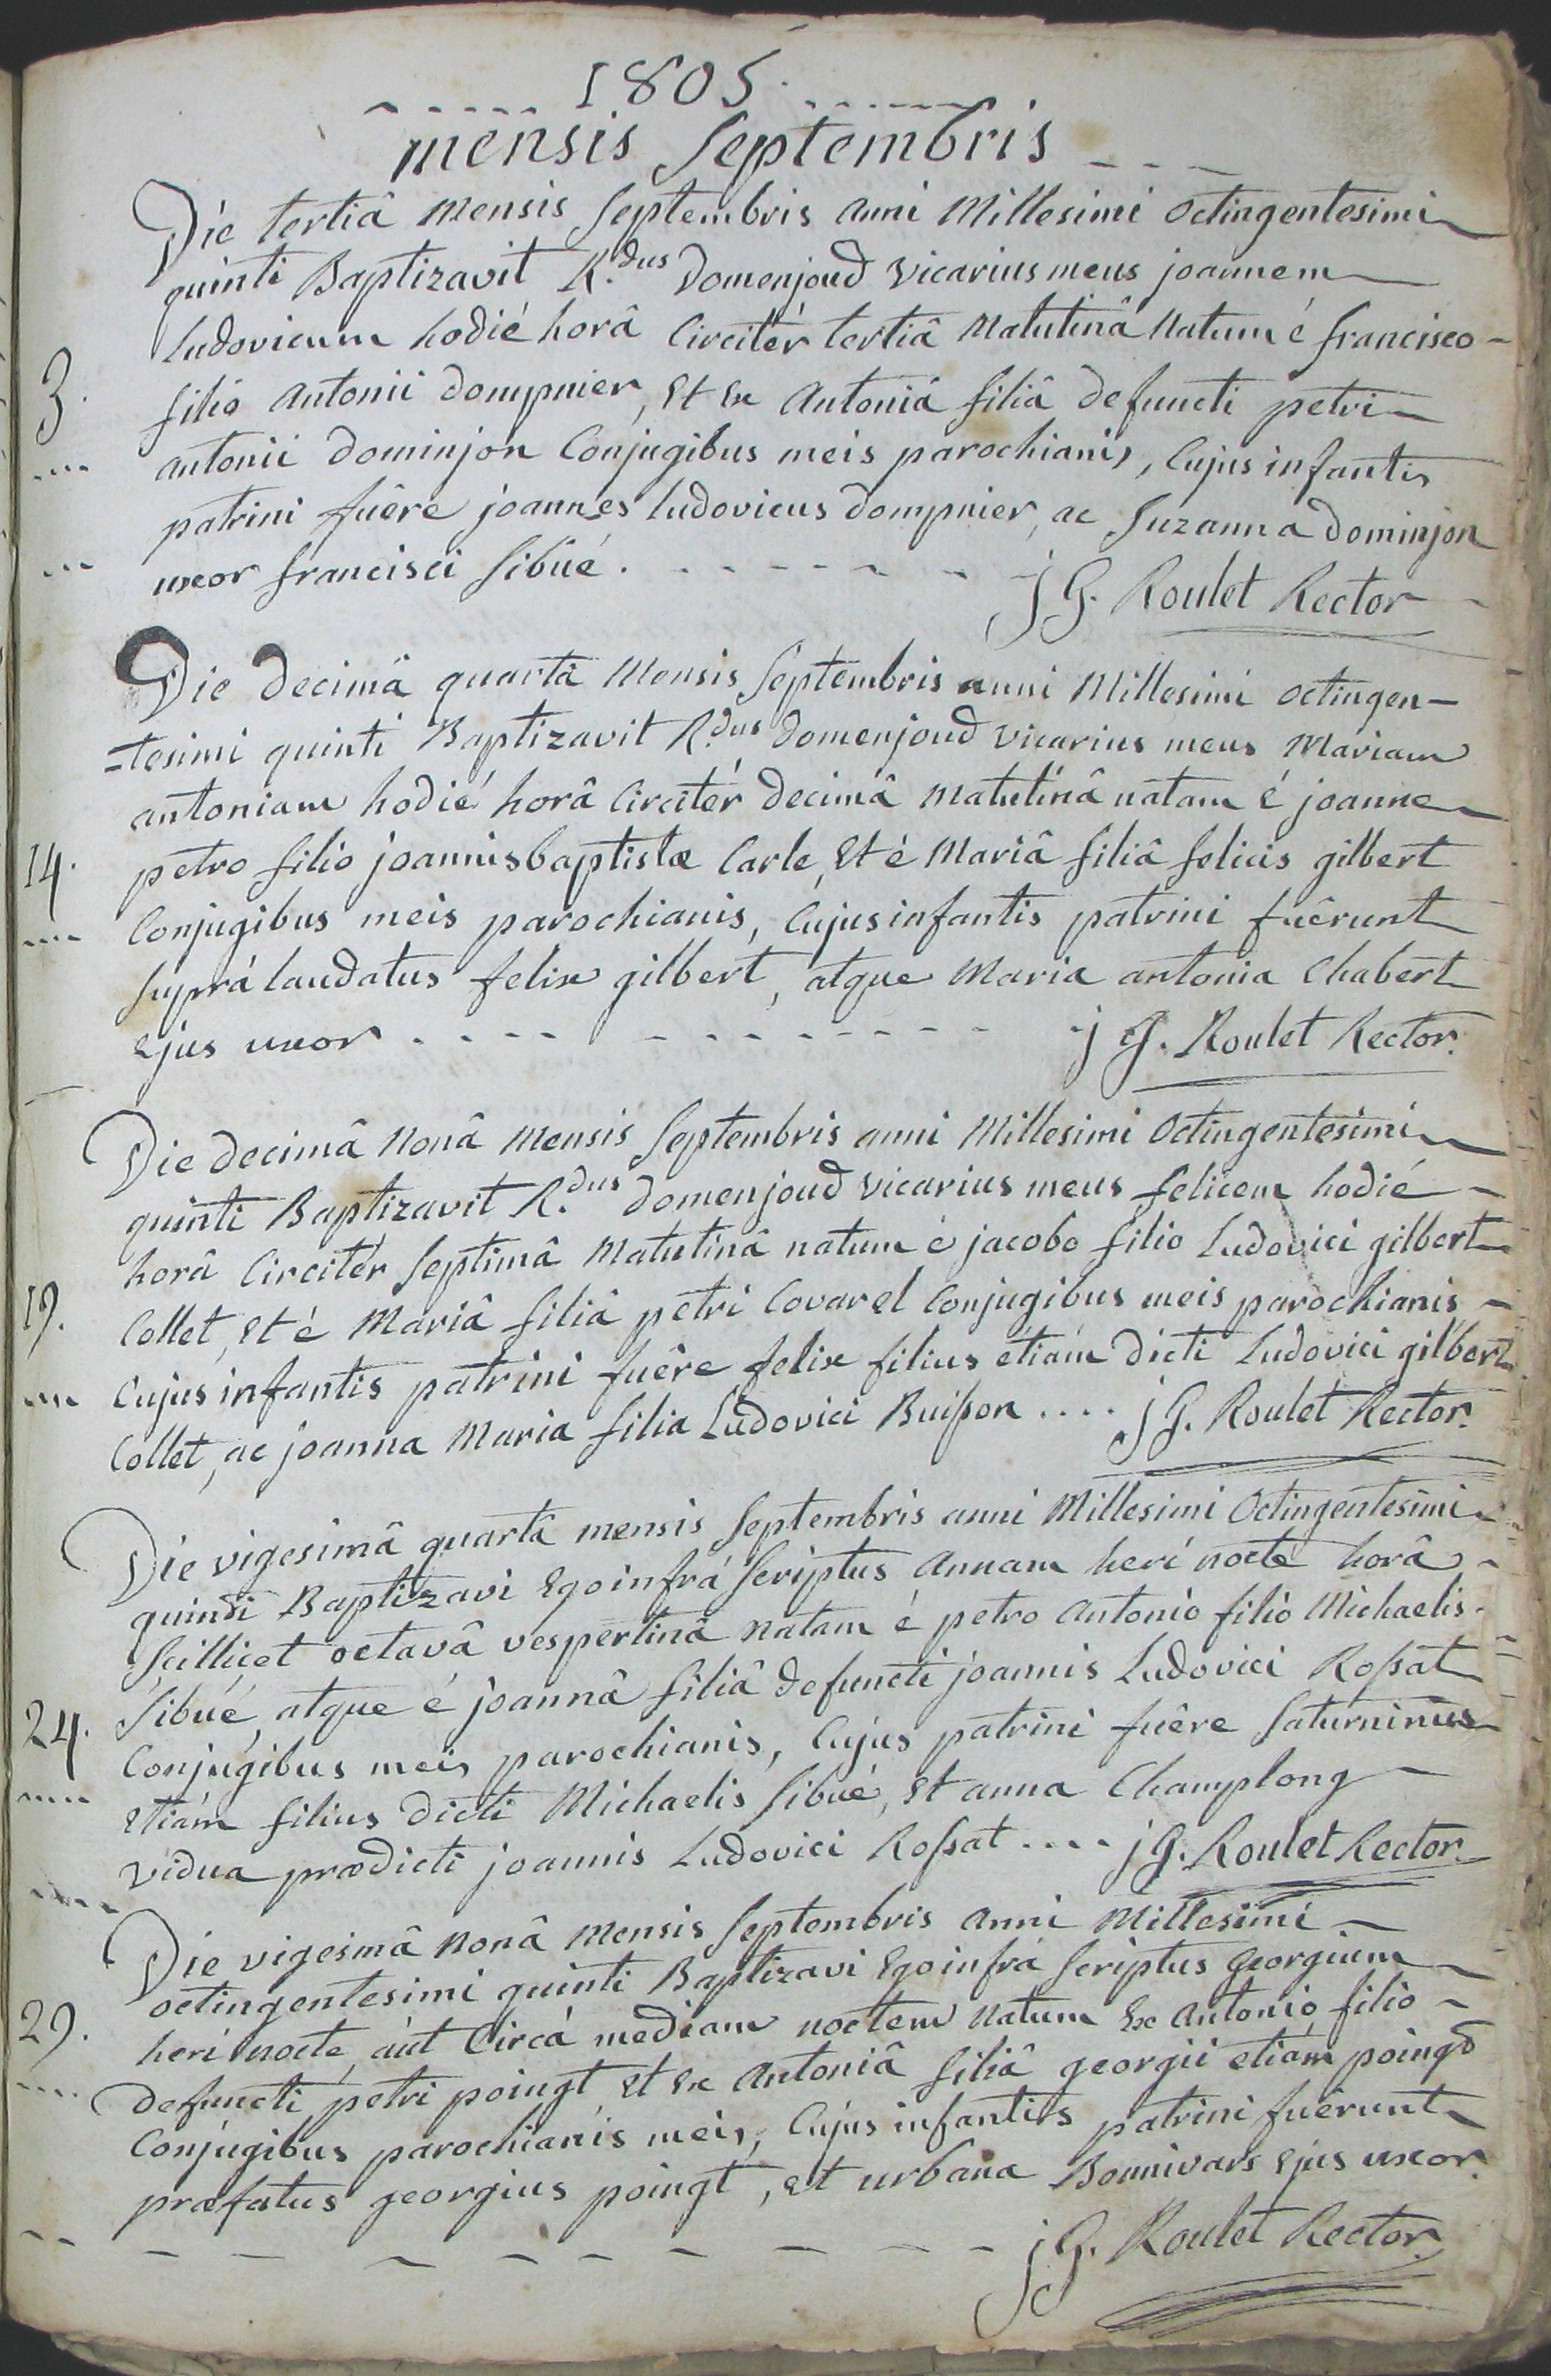 1805.
mensis Septembris
Die tertiâ mensis Septembris anni Millesimi octingentesimi
quinti Baptizavit R.dus Domenjoud vicarius meus joannem
Ludovicum hodié horâ Circitér tertiâ Matutinâ Natum é francisco
3.
filio Antonii Dompnier, Et Ex Antoniâ filiâ defuncti petri
antonii Dominjon Conjugibus meis parochianis, Cujus infantis
patrini fuêre joannes Ludovicus Dompnier, ac Suzanna Dominjon
uxor francisci Sibüé.
j G. Roulet Rector
Die Decimâ quartâ Mensis Septembris anni Millesimi octingen-
=tesimi quinti Baptizavit R.dus Domenjoud vicarius meus Mariam
antoniam hodié horâ Circitér Decimâ Matutinâ natam é joanne
14.
petro filio joannisbaptistæ Carle, Et è Mariâ filiâ felicis gilbert
Conjugibus meis parochianis, Cujus infantis patrini fuêrunt
suprá laudatus felix gilbert, atque Maria antonia Chabert
Ejus uxor
j G. Roulet Rector.
Die Decimâ Nonâ Mensis Septembris anni Millesimi Octingentesimi
quinti Baptizavit R.dus Domenjoud vicarius meus felicem hodié
horâ Circitér Septimâ Matutinâ natum é jacobo filio Ludovici gilbert
19.
Collet, Et é Mariâ filiâ petri Covarel Conjugibus meis parochianis
Cujus infantis patrini fuêre felix filius étiám dicti Ludovici gilbert
Collet, ac joanna Maria filia Ludovici Buisson .... j G. Roulet Rector.
Die vigesimâ quartâ mensis Septembris anni Millesimi Octingentesimi
quinti Baptizavi Ego infrá Scriptus Annam heri nocte horâ
Scillicet octavâ vespertinâ natam é petro Antonio filio Michaelis
24.
Sibüé, atque é joannâ filiâ defuncti joannis Ludovici Rossat
Conjugibus meis parochianis, Cujus patrini fuêre Saturninus
Etiám filius dicti Michaelis Sibüé, Et anna Champlong
vidua prædicti joannis Ludovici Rossat .... j G. Roulet Rector.
Die vigesimâ Nonâ Mensis Septembris Anni Millesimi
octingentesimi quinti Baptizavi Ego infrá Scriptus georgium
29.
heri nocte, aút Circá mediam noctem Natum Ex Antonio filio
defuncti petri poingt, Et Ex Antoniâ filiâ georgii etiám poingd
Conjugibus parochianis meis, Cujus infantis patrini fuêrunt
præfatus georgius poingt, et urbana Bonnivars Ejus uxor.
j G. Roulet Rector.